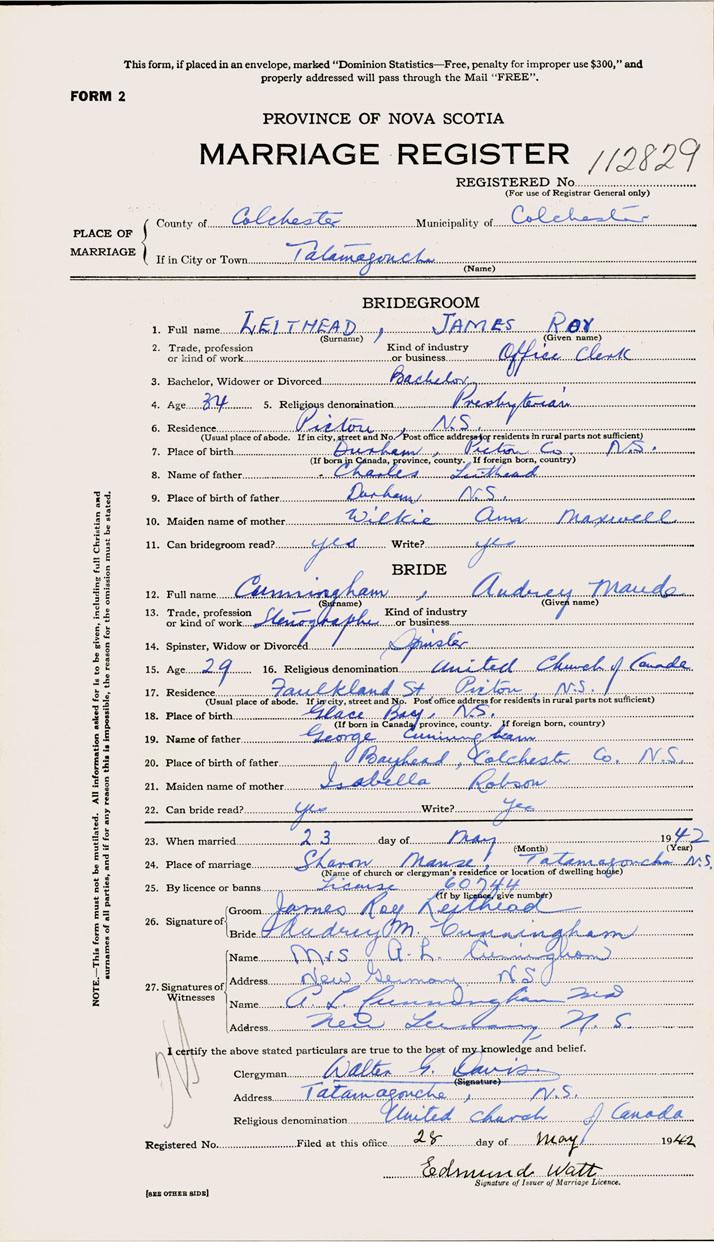 This form, if placed in an envelope, marked "Dominion Statistics—Free, penalty for improper use $300," and
properly addressed will pass through the Mail "FREE".
FORM 2
PROVINCE OF NOVA SCOTIA
MARRIAGE REGISTER 112829
REGISTERED No.
(For use of Registrar General only)
PLACE OF MARRIAGE
County of Colchester Municipality of Colchester
If in City or Town Tatamagouche
(Name)
BRIDEGROOM
1. Full name LEITHEAD, JAMES ROY
(Surname) (Given name)
2. Trade, profession or kind of work Kind of industry or business Office Clerk
3. Bachelor, Widower or Divorced Bachelor
4. Age 34 5. Religious denomination Presbyterian
6. Residence Pictou, N.S.
(Usual place of abode. If in city, street and No. Post office address for residents in rural parts not sufficient)
7. Place of birth Durham, Pictou Co. N.S.
(If born in Canada, province, county. If foreign born, country)
8. Name of father Charles Leithead
9. Place of birth of father Durham N.S.
10. Maiden name of mother Wilkie Ann Maxwell
11. Can bridegroom read? yes Write? yes
BRIDE
12. Full name Cunningham, Audrey Maude
(Surname) (Given name)
13. Trade, profession or kind of work Stenographer Kind of industry or business
14. Spinster, Widow or Divorced Spinster
15. Age 29 16. Religious denomination United Church of Canada
17. Residence Faulkland St, Pictou, N.S.
(Usual place of abode. If in city, street and No. Post office address for residents in rural parts not sufficient)
18. Place of birth Glace Bay, N.S.
(If born in Canada, province, county. If foreign born, country)
19. Name of father George Cunningham
20. Place of birth of father Bayhead, Colchester Co. N.S.
21. Maiden name of mother Isabella Robson
22. Can bride read? yes Write? yes
23. When married 23 day of May 1942
(Month) (Year)
24. Place of marriage Sharon Manse, Tatamagouche N.S.
(Name of church or clergyman's residence or location of dwelling house)
25. By licence or banns License 60744
(If by licence, give number)
26. Signature of
Groom James Roy Leithead
Bride Audrey M. Cunningham
27. Signatures of Witnesses
Name Mrs A. L. Cunningham
Address New Germany N.S.
Name A. L. Cunningham
Address New Germany, N.S.
I certify the above stated particulars are true to the best of my knowledge and belief.
Clergyman Walter G. Davis
(Signature)
Address Tatamagouche, N.S.
Religious denomination United Church of Canada
Registered No. Filed at this office 28 day of May 1942
Edmund Watt
Signature of Issuer of Marriage Licence.
[SEE OTHER SIDE]
NOTE.—This form must not be mutilated. All information asked for is to be given, including full Christian and
surnames of all parties, and if for any reason this is impossible, the reason for the omission must be stated.